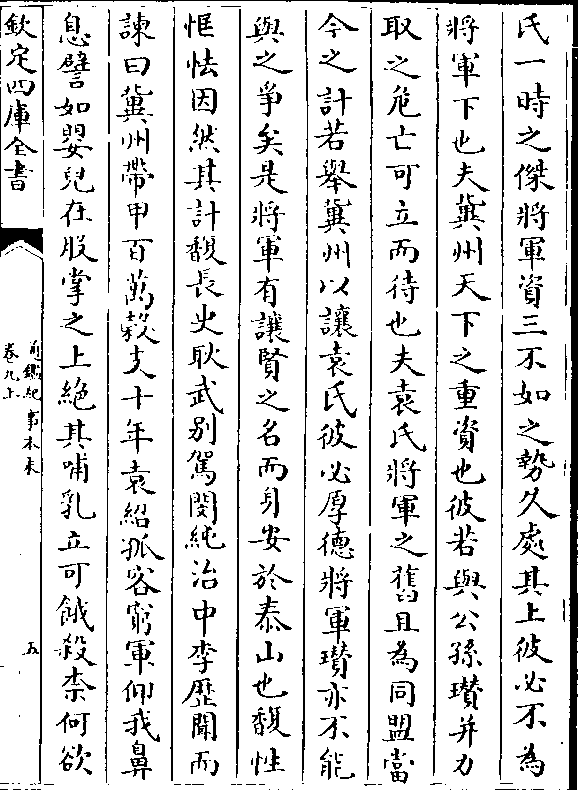 氏一時之傑將軍資三不如之勢久處其上彼必不為
將軍下也夫冀州天下之重資也彼若與公孫瓚并力
取之危亡可立而待也夫袁氏將軍之舊且為同盟當
今之計若舉冀州以讓袁氏彼必厚德將軍瓚亦不能
與之爭矣是將軍有讓賢之名而身安於泰山也馥性
恇怯因然其計馥長史耿武别駕閔純治中李歴聞而
諫曰冀州帶甲百萬榖支十年袁紹孤客窮軍仰我鼻
息譬如嬰兒在股掌之上絶其哺乳立可餓殺柰何欲
欽定四庫全書
通鑑紀事本末
卷九上
五